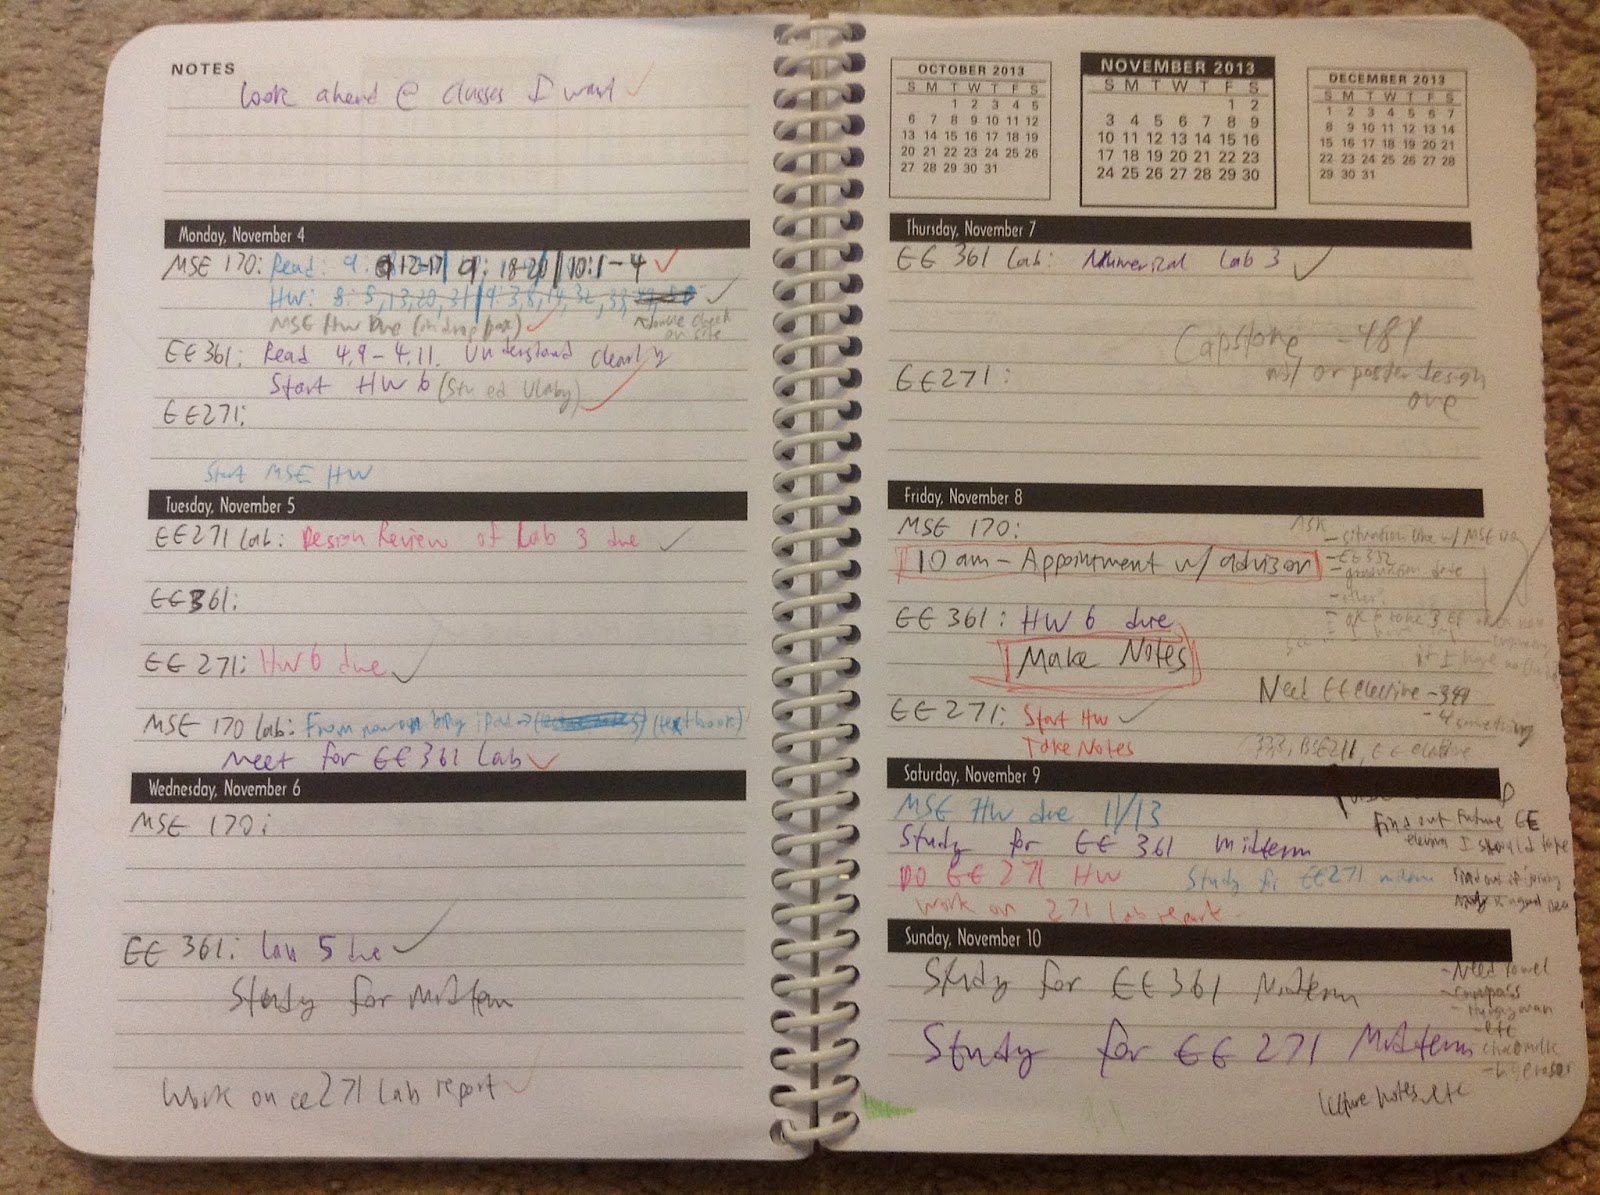 NOTES
Look ahead @ classes I want
Monday, November 4
MSE 170: Read: 9: 12-17 | 9: 18-20 | 10:1-4
HW: 8: 5, 13, 20, 31 | 9: 3, 8, 14, 32, 33
MSE HW Due (in drop box) double check
on site
EE 361: Read 4.9-4.11. Understand clearly
Start HW 6 (Ulaby)
EE271:
Start MSE HW
Tuesday, November 5
EE271 Lab: Design Review of Lab 3 due
EE361:
EE 271: HW 6 due
MSE 170 Lab: From now on bring iPad (textbook)
Meet for EE361 Lab
Wednesday, November 6
MSE 170:
EE 361: Lab 5 due
Study for Midterm
Work on ee271 Lab report
OCTOBER 2013
S M T W T F S
1 2 3 4 5
6 7 8 9 10 11 12
13 14 15 16 17 18 19
20 21 22 23 24 25 26
27 28 29 30 31
NOVEMBER 2013
S M T W T F S
1 2
3 4 5 6 7 8 9
10 11 12 13 14 15 16
17 18 19 20 21 22 23
24 25 26 27 28 29 30
DECEMBER 2013
S M T W T F S
1 2 3 4 5 6 7
8 9 10 11 12 13 14
15 16 17 18 19 20 21
22 23 24 25 26 27 28
29 30 31
Thursday, November 7
EE 361 Lab: Numerical Lab 3
Capstone - 484
not or poster design
one
EE271:
Friday, November 8
MSE 170:
10 am - Appointment w/ advisor
Ask
- situation like w/ MSE
- EE332
- graduation date
- other
- ok to take 3 EE
if I have
EE 361: HW 6 due
Make Notes
Need EE elective - 399
- 4 something
EE 271: Start HW
Take Notes
333, BSE211, EE elective
Saturday, November 9
MSE HW due 11/13
Study for EE 361 Midterm
DO EE 271 HW Study for EE271 midterm
Work on 271 Lab report
Find out future EE
I should take
Find out if
Sunday, November 10
Study for EE361 Midterm
Study for EE 271 Midterm
- Need towel
- compass
- etc
lecture notes, etc